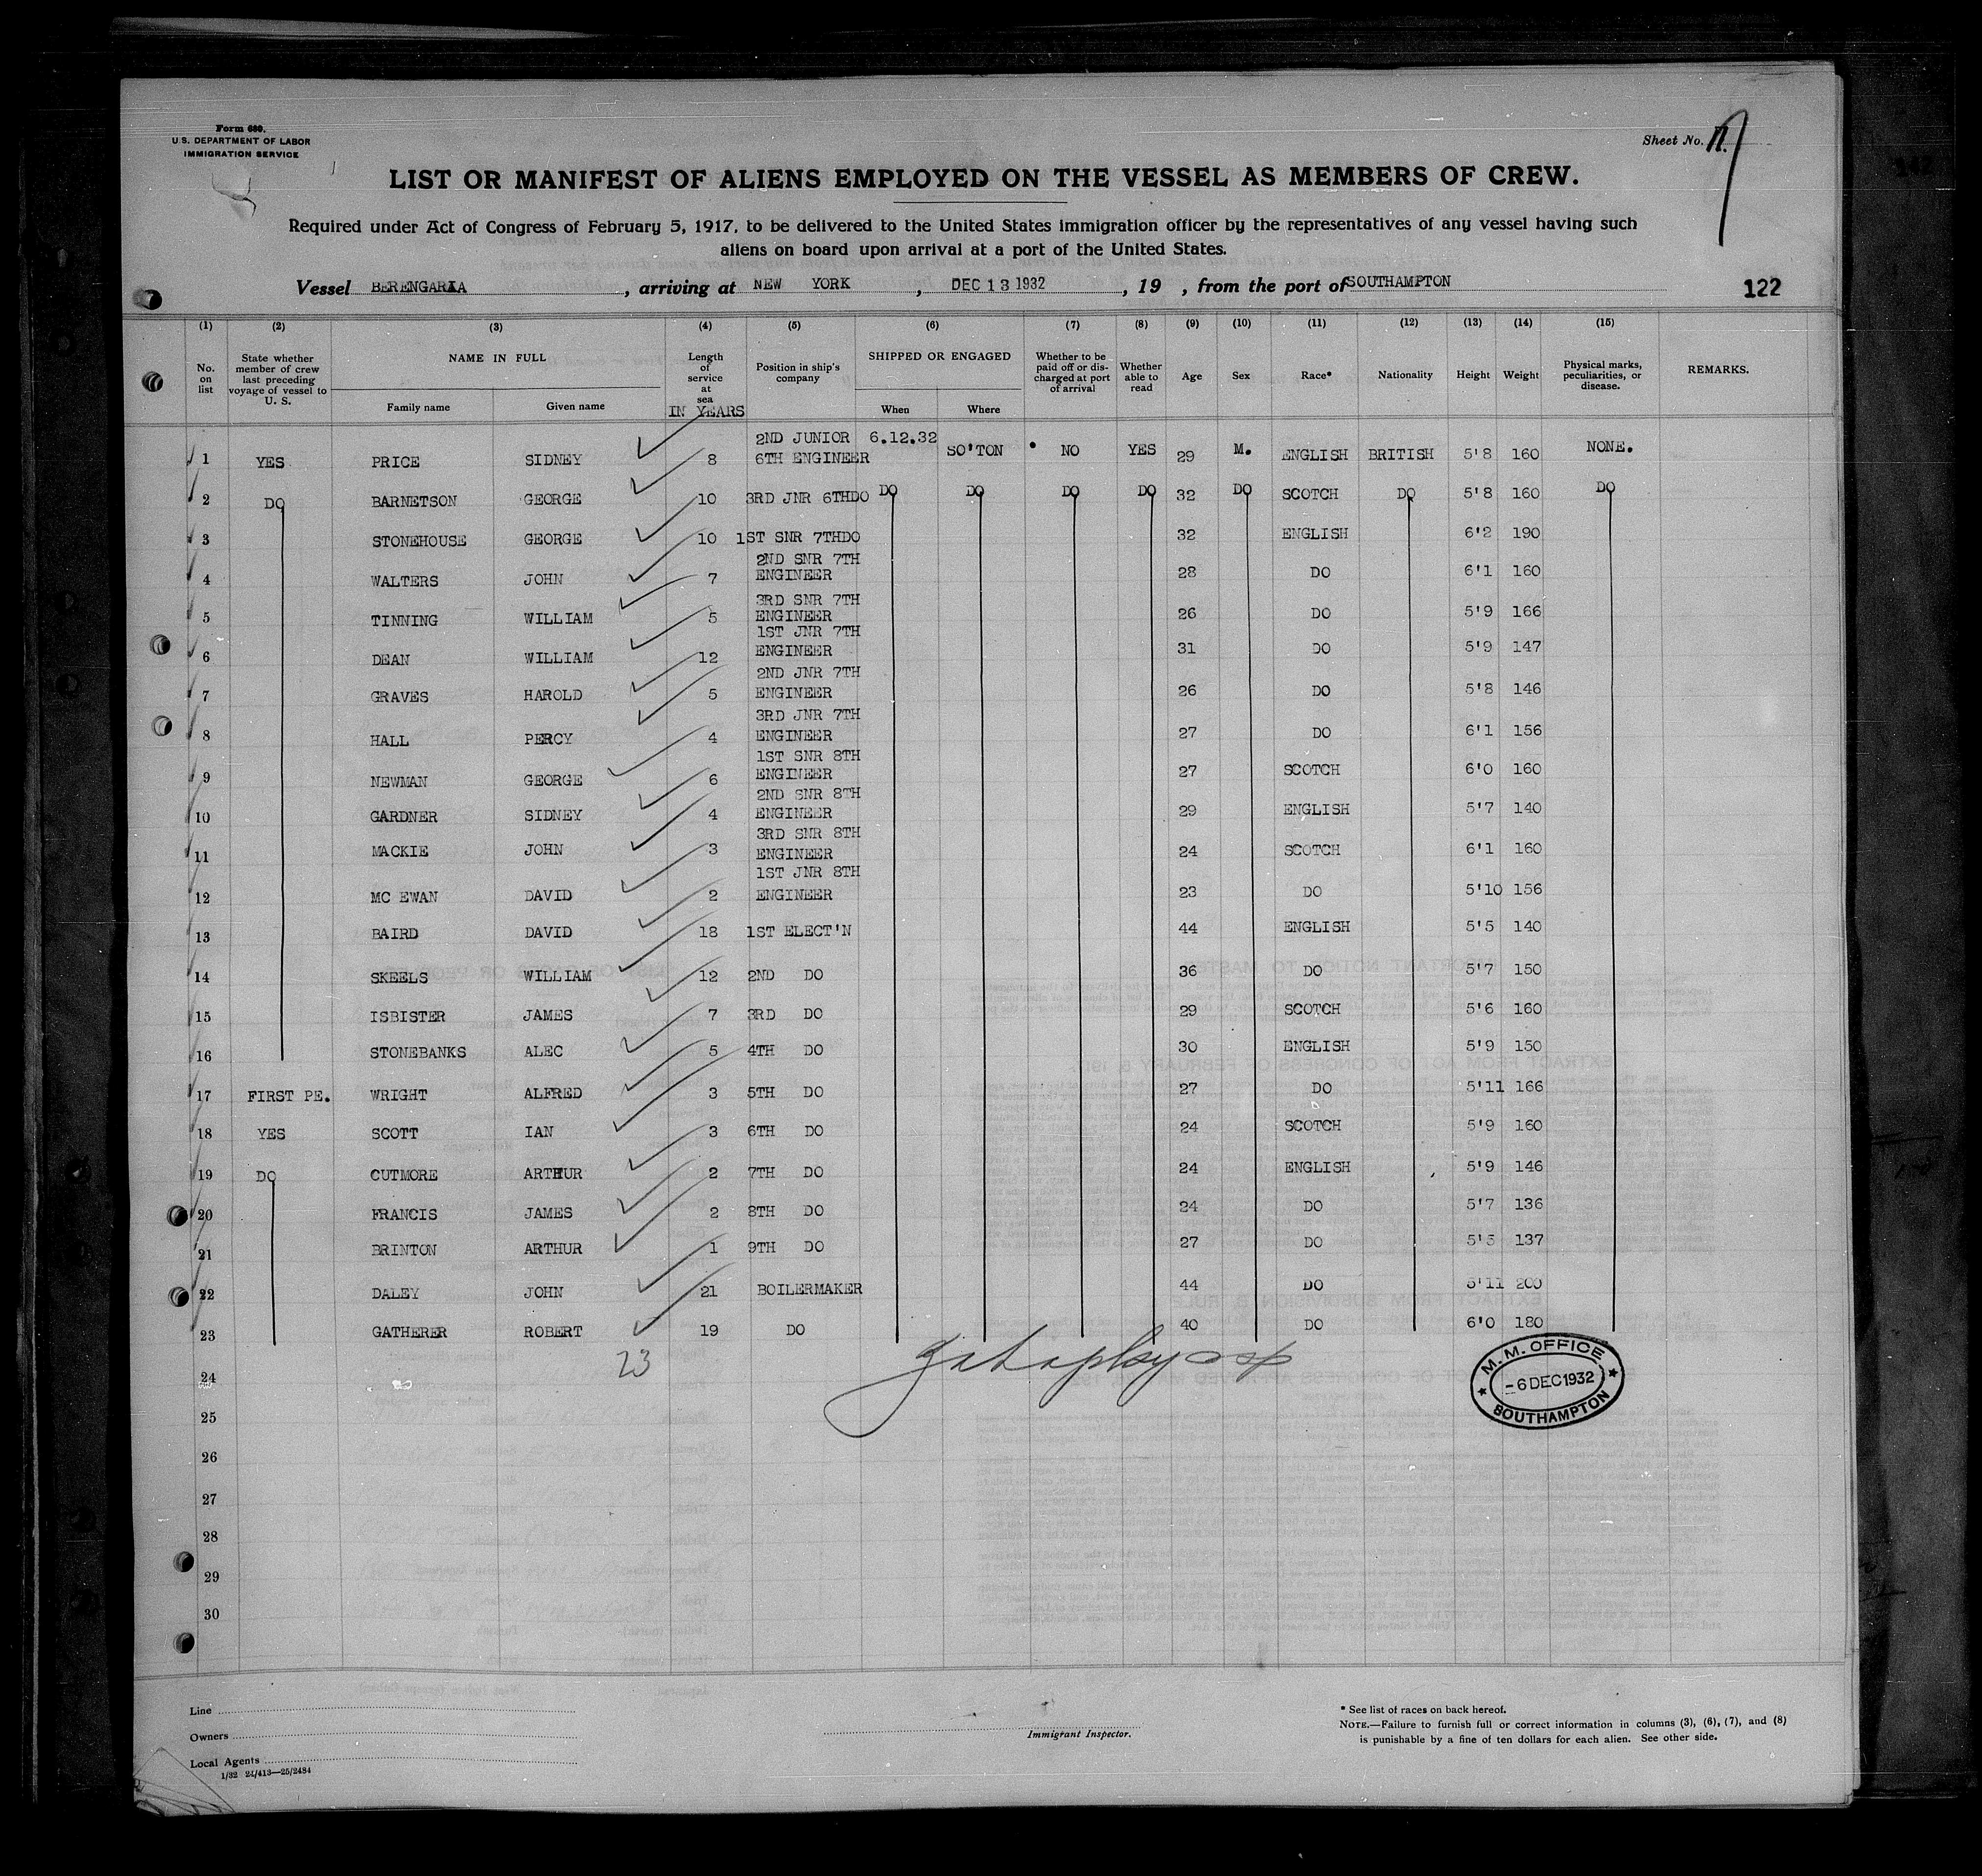 Form 680.
U.S. DEPARTMENT OF LABOR
IMMIGRATION SERVICE
Sheet No.
LIST OR MANIFEST OF ALIENS EMPLOYED ON THE VESSEL AS MEMBERS OF CREW.
Required under Act of Congress of February 5, 1917, to be delivered to the United States immigration officer by the representatives of any vessel having such
aliens on board upon arrival at a port of the United States.
Vessel BERENGARIA, arriving at NEW YORK, DEC 13 1932, 19 , from the port of SOUTHAMPTON
122
(1) (2) (3) (4) (5) (6) (7) (8) (9) (10) (11) (12) (13) (14) (15)
No. on list State whether member of crew last preceding voyage of vessel to U. S. NAME IN FULL Family name Given name Length of service at sea IN YEARS Position in ship's company SHIPPED OR ENGAGED When Where Whether to be paid off or discharged at port of arrival Whether able to read Age Sex Race* Nationality Height Weight Physical marks, peculiarities, or disease. REMARKS.
1 YES PRICE SIDNEY 8 2ND JUNIOR 6TH ENGINEER 6.12.32 SO'TON NO YES 29 M. ENGLISH BRITISH 5'8 160 NONE.
2 DO BARNETSON GEORGE 10 3RD JNR 6THDO DO DO DO DO 32 DO SCOTCH DO 5'8 160 DO
3 STONEHOUSE GEORGE 10 1ST SNR 7THDO 32 ENGLISH 6'2 190
4 WALTERS JOHN 7 2ND SNR 7TH ENGINEER 28 DO 6'1 160
5 TINNING WILLIAM 5 3RD SNR 7TH ENGINEER 26 DO 5'9 166
6 DEAN WILLIAM 12 1ST JNR 7TH ENGINEER 31 DO 5'9 147
7 GRAVES HAROLD 5 2ND JNR 7TH ENGINEER 26 DO 5'8 146
8 HALL PERCY 4 3RD JNR 7TH ENGINEER 27 DO 6'1 156
9 NEWMAN GEORGE 6 1ST SNR 8TH ENGINEER 27 SCOTCH 6'0 160
10 GARDNER SIDNEY 4 2ND SNR 8TH ENGINEER 29 ENGLISH 5'7 140
11 MACKIE JOHN 3 3RD SNR 8TH ENGINEER 24 SCOTCH 6'1 160
12 MC EWAN DAVID 2 1ST JNR 8TH ENGINEER 23 DO 5'10 156
13 BAIRD DAVID 18 1ST ELECT'N 44 ENGLISH 5'5 140
14 SKEELS WILLIAM 12 2ND DO 36 DO 5'7 150
15 ISBISTER JAMES 7 3RD DO 29 SCOTCH 5'6 160
16 STONEBANKS ALEC 5 4TH DO 30 ENGLISH 5'9 150
17 FIRST PE. WRIGHT ALFRED 3 5TH DO 27 DO 5'11 166
18 YES SCOTT IAN 3 6TH DO 24 SCOTCH 5'9 160
19 DO CUTMORE ARTHUR 2 7TH DO 24 ENGLISH 5'9 146
20 FRANCIS JAMES 2 8TH DO 24 DO 5'7 136
21 BRINTON ARTHUR 1 9TH DO 27 DO 5'5 137
22 DALEY JOHN 21 BOILERMAKER 44 DO 5'11 200
23 GATHERER ROBERT 19 DO 40 DO 6'0 180
23
24
25
26
27
28
29
30
M. M. OFFICE
-6 DEC 1932
SOUTHAMPTON
Line
Owners
Local Agents
1/32 24/413—25/2484
Immigrant Inspector.
* See list of races on back hereof.
NOTE.—Failure to furnish full or correct information in columns (3), (6), (7), and (8)
is punishable by a fine of ten dollars for each alien. See other side.